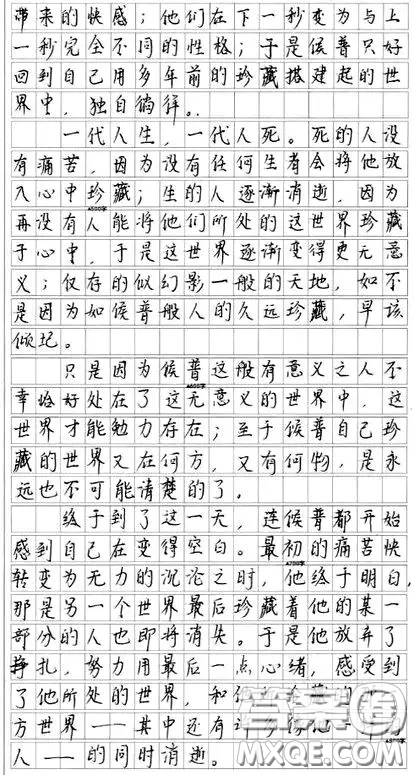 带来的快感；他们在下一秒变为与上
一秒完全不同的性格；于是侯普只好
回到自己用多年前的珍藏搭建起的世
界中，独自徜徉。
一代人生，一代人死。死的人没
有痛苦，因为没有任何生者会将他放
入心中珍藏；生的人逐渐消逝，因为
▲500字
再没有人能将他们所处的这世界珍藏
于心中，于是这世界逐渐变得更无意
义；仅存的似幻影一般的天地，如不
是因为如侯普般人的久远珍藏，早该
倾圮。
只是因为侯普这般有意义之人不
▲600字
幸恰好处在了这无意义的世界中，这
世界才能勉力存在；至于侯普自己珍
藏的世界又在何方，又有何物，是永
远也不可能清楚的了。
终于到了这一天，连侯普都开始
感到自己在变得空白。最初的痛苦快
▲700字
转变为无力的沉沦之时，他终于明白，
那是另一个世界最后珍藏着他的某一
部分的人也即将消失。于是他放弃了
挣扎，努力用最后一点心绪，感受到
了他所处的世界，和
方世界——其中还有
▲800字
人——的同时消逝。
答案圈
MXQE.COM